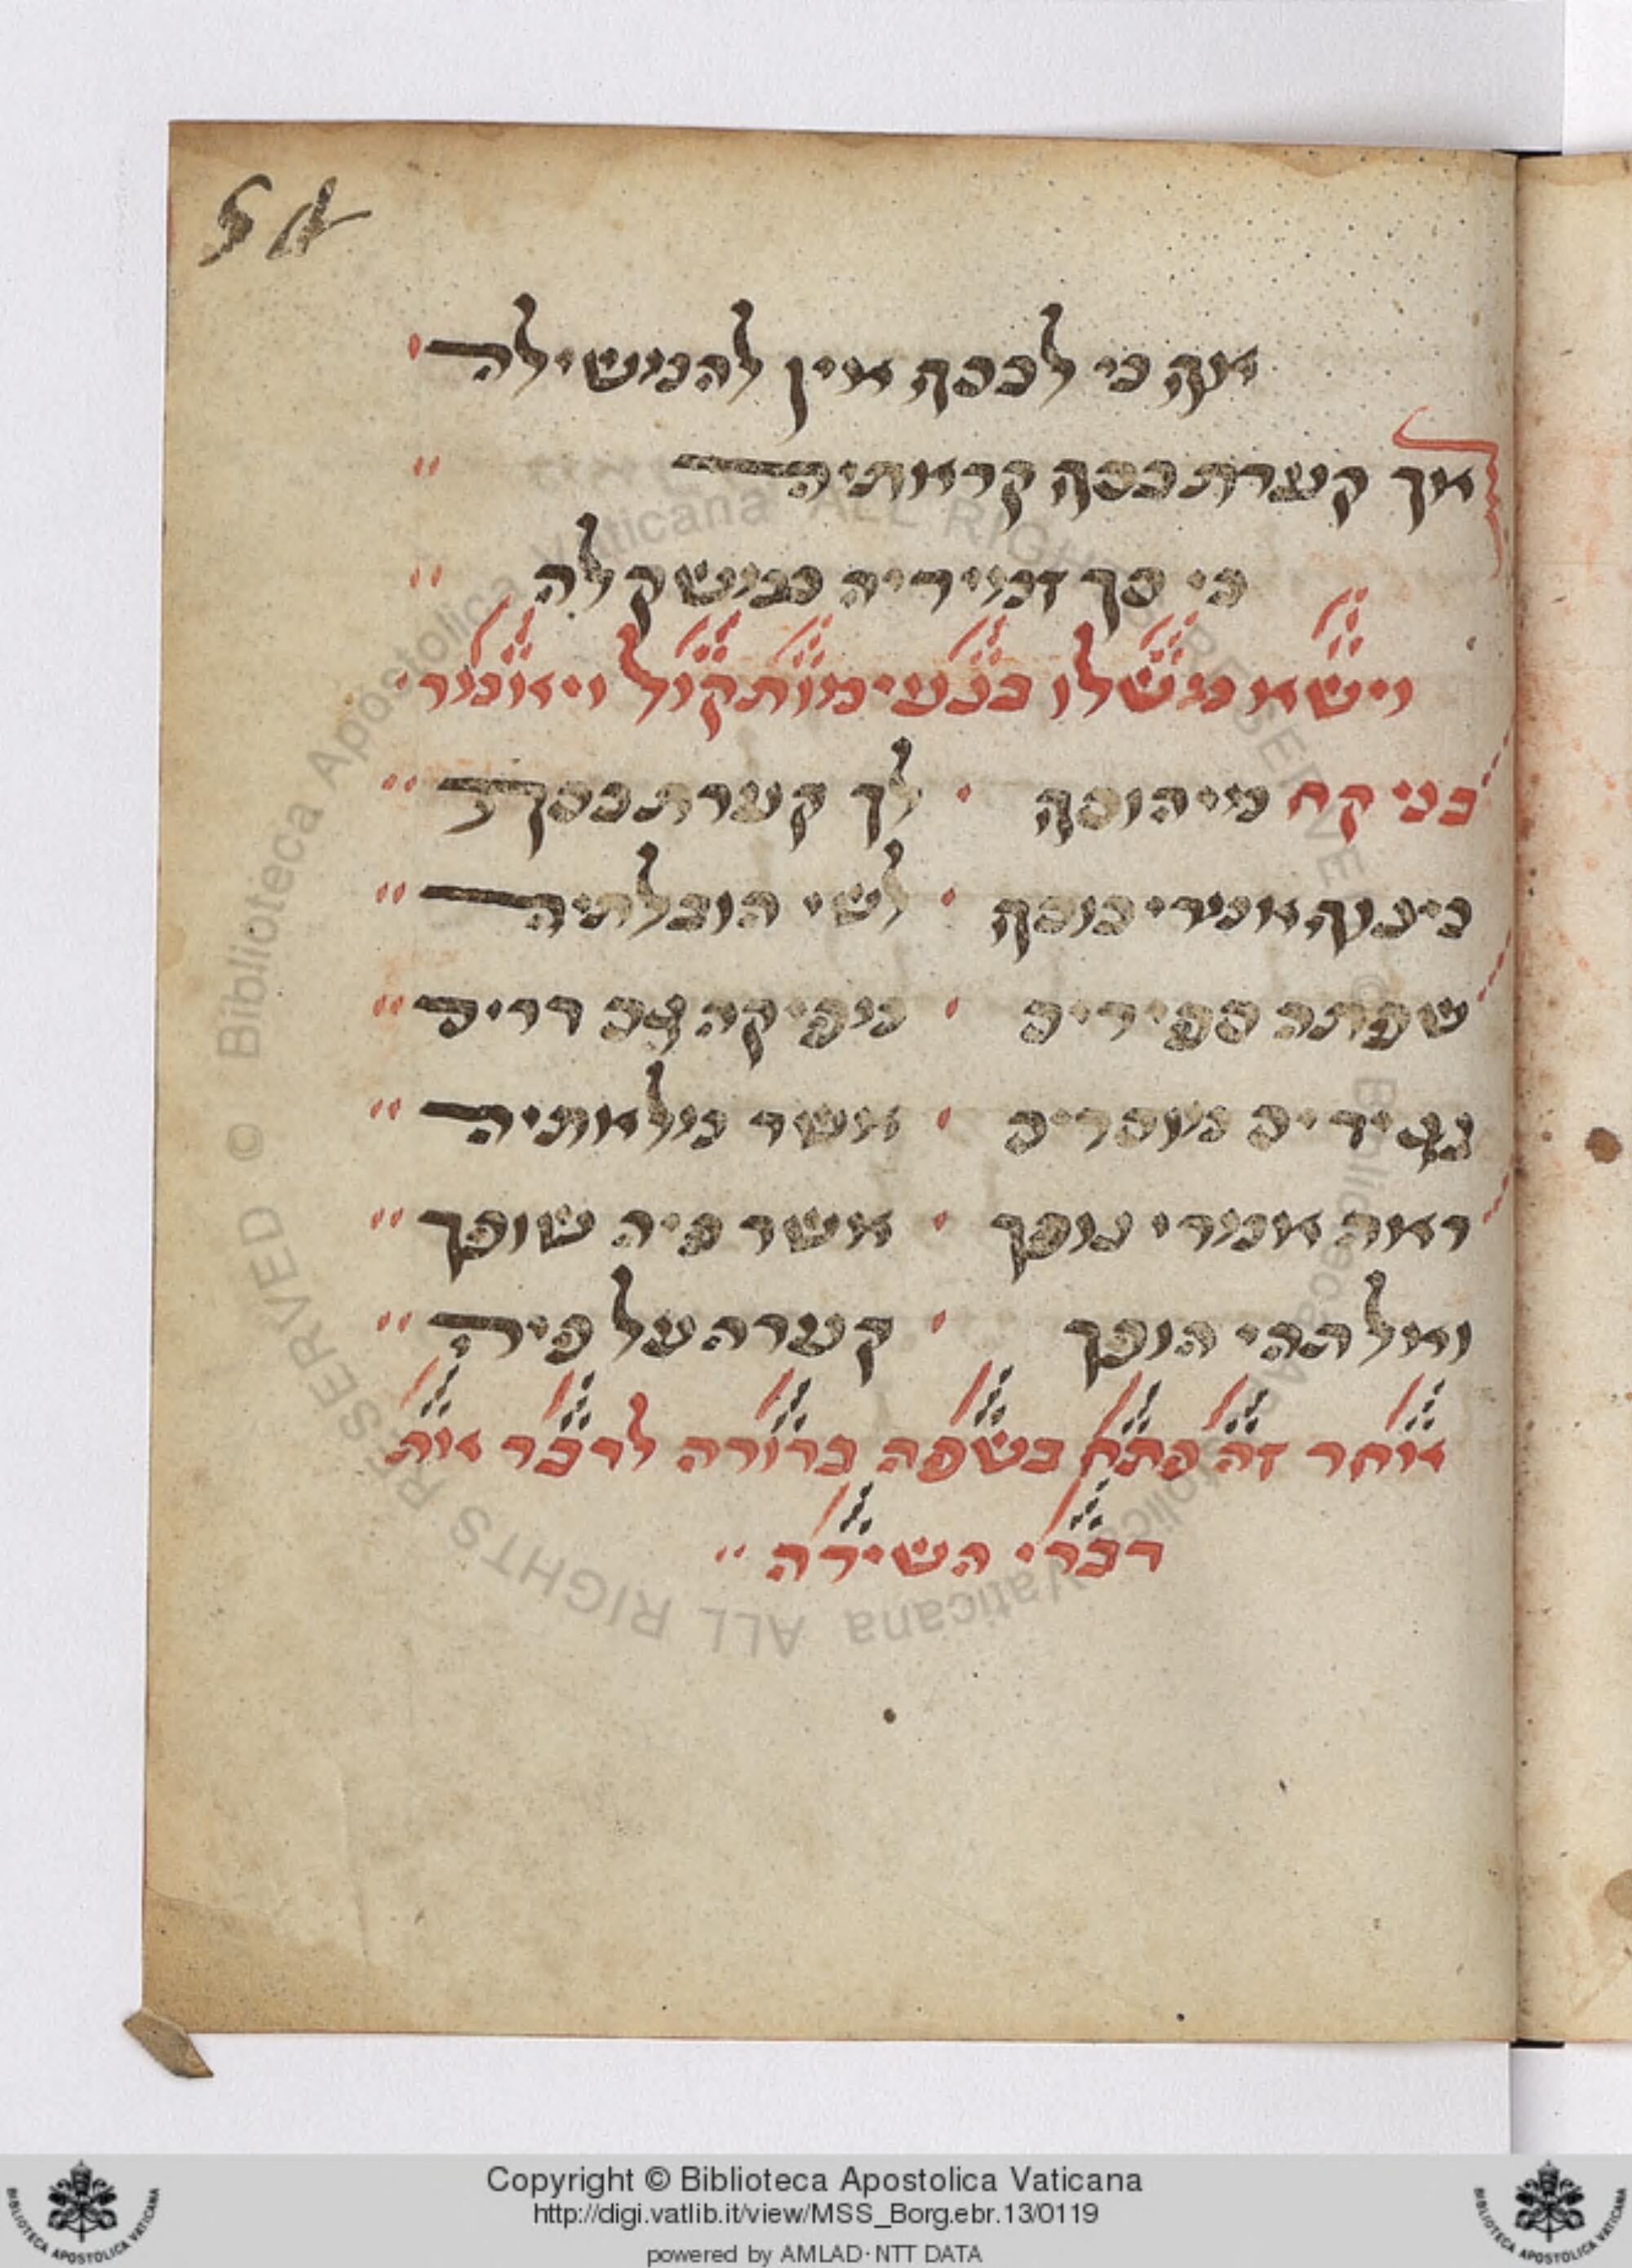 54
אף כי לכסף אין להמשילה
אך קערת כסף קראתיה
כי סך זמיריה משקלה
וישא משלו בנעימות קול ויאומר
בני קח מיהוסף · לך קערת כסף
כיצוף אמרי כוסף · לשי הובלתיה
שפתה ספירים · מפיקה צם
נגידים מישרים · אשר מלאתיה
ראה אמרי נופך · אשר פיה שופך
ואל תהי הופך · קערה על פיה
אוחר זה פתח בשפה ברורה לדבר אות
דברי השירה
Copyright © Biblioteca Apostolica Vaticana
http://digi.vatlib.it/view/MSS_Borg.ebr.13/0119
powered by AMLAD·NTT DATA